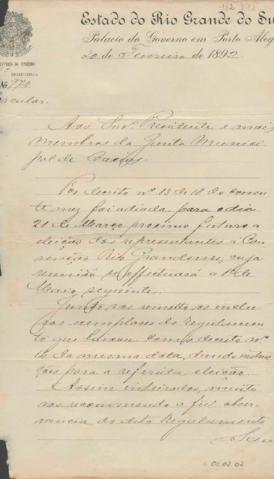 Estado do Rio Grande do Su
Palacio do Governo em Porto Aleg
20 de Fevereiro de 1892
cular.
Aos Snrs. Presidente e mais
membros da Junta Munici
pal de Caxias
Por decreto nº 13 de 18 do corren
te mez foi adiada para o dia
21 de Março proximo futuro a
eleição dos representantes á Con
venção Rio Grandense, cuja
reunião se effectuará a 1º de
Maio seguinte.
Junto vos remetto os inclu
sos exemplares do Regulamento
que baixou com o decreto nº
14 da mesma data, dando instruc
ções para a referida eleição.
Assim inteirados, muito
vos recommendo a fiel obser
vancia do dito Regulamento